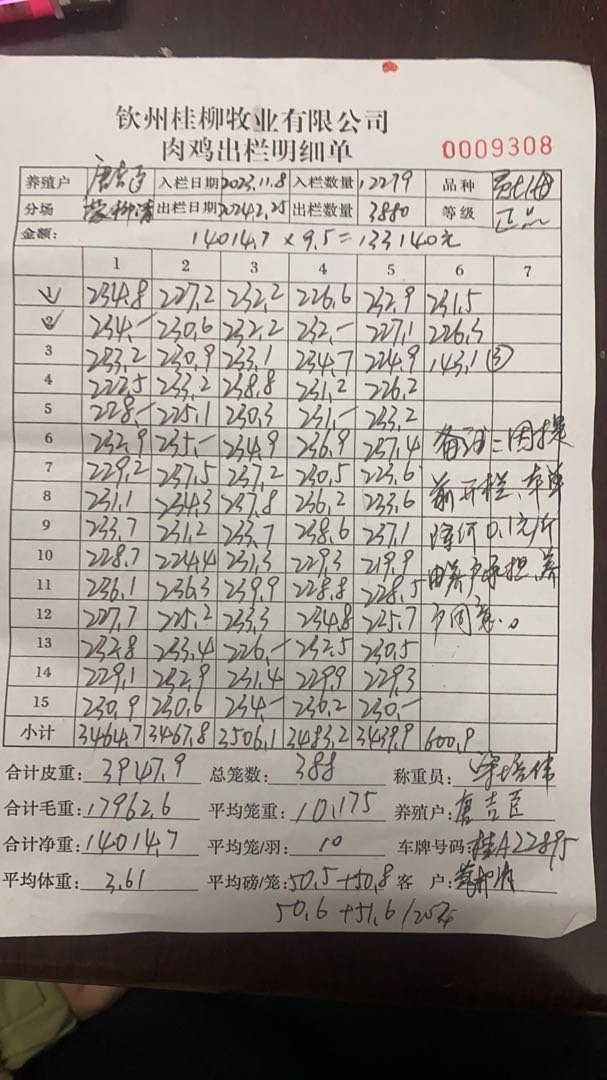 钦州桂柳牧业有限公司
肉鸡出栏明细单
0009308
养殖户 唐吉臣 入栏日期 2023.11.8 入栏数量 12279 品种
分场 出栏日期 2024.2.25 出栏数量 3880 等级 正品
金额: 14014.7 × 9.5 = 133140元
1 2 3 4 5 6 7
1 234.8 227.2 232.2 226.6 232.9 231.5
2 234.- 230.6 232.2 232.- 227.1 226.3
3 233.2 230.9 233.1 234.7 224.9 143.1 ③
4 222.5 233.2 238.8 231.2 226.2
5 228.- 225.1 230.3 231.- 233.2
6 232.9 235.- 234.9 236.9 237.4 备注:因提
7 229.2 237.5 237.2 230.5 223.6 前开栏、单
8 231.1 234.3 237.8 236.2 233.6
9 233.7 231.2 233.7 238.6 237.1 降价0.1元/斤
10 228.7 224.4 231.3 229.3 219.9 由养户承担,养
11 236.1 236.3 239.9 228.8 228.5 户同意。
12 227.7 225.2 233.3 234.8 225.7
13 232.8 233.4 226.- 232.5 230.5
14 229.1 232.9 231.4 229.9 229.3
15 230.9 230.6 234.- 230.2 230.-
小计 3464.7 3467.8 3506.1 3483.2 3439.9 600.9
合计皮重: 3947.9 总笼数: 388 称重员:
合计毛重: 17962.6 平均笼重: 10.175 养殖户: 唐吉臣
合计净重: 14014.7 平均笼/羽: 10 车牌号码: 桂A22895
平均体重: 3.61 平均磅/笼: 50.5+50.8 客 户:
50.6 +51.6 /20